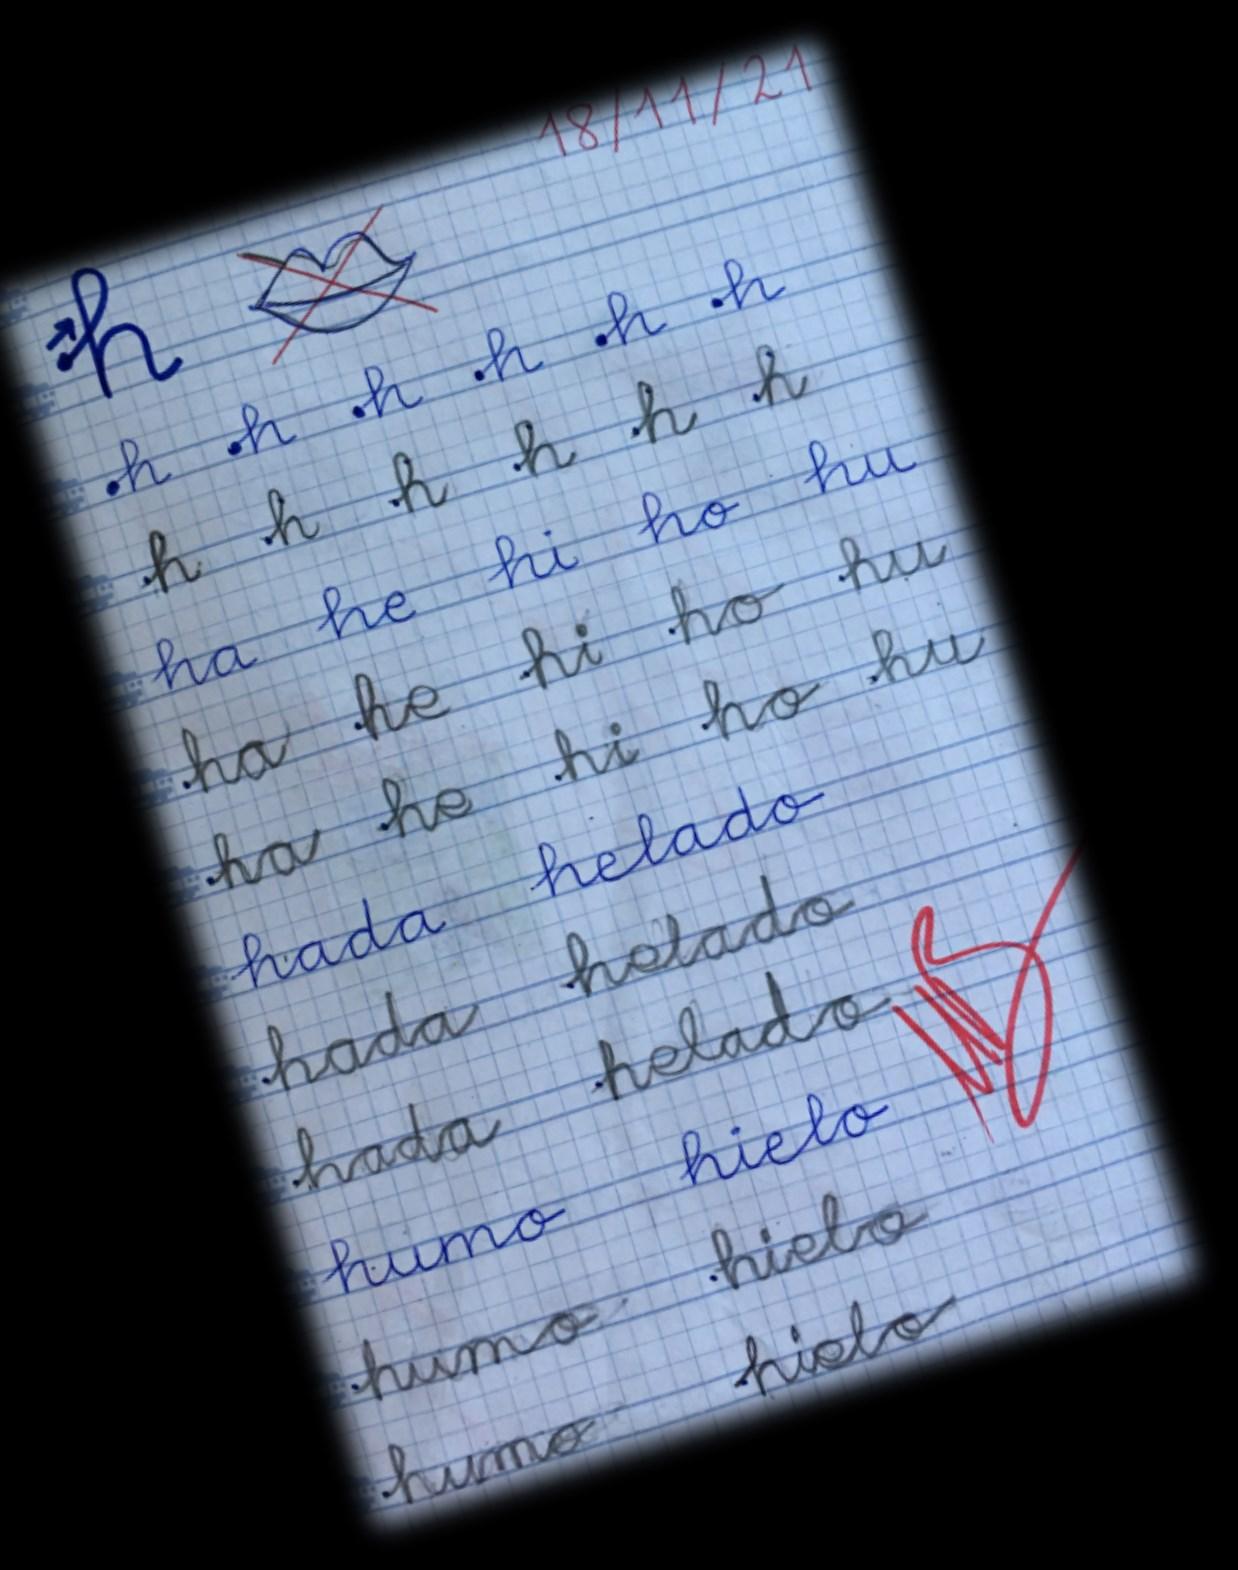 18/11/21
h
h h h h h h
h h h h h h
ha he hi ho hu
ha he hi ho hu
ha he hi ho hu
hada helado
hada helado
hada helado
humo hielo
humo hielo
humo hielo